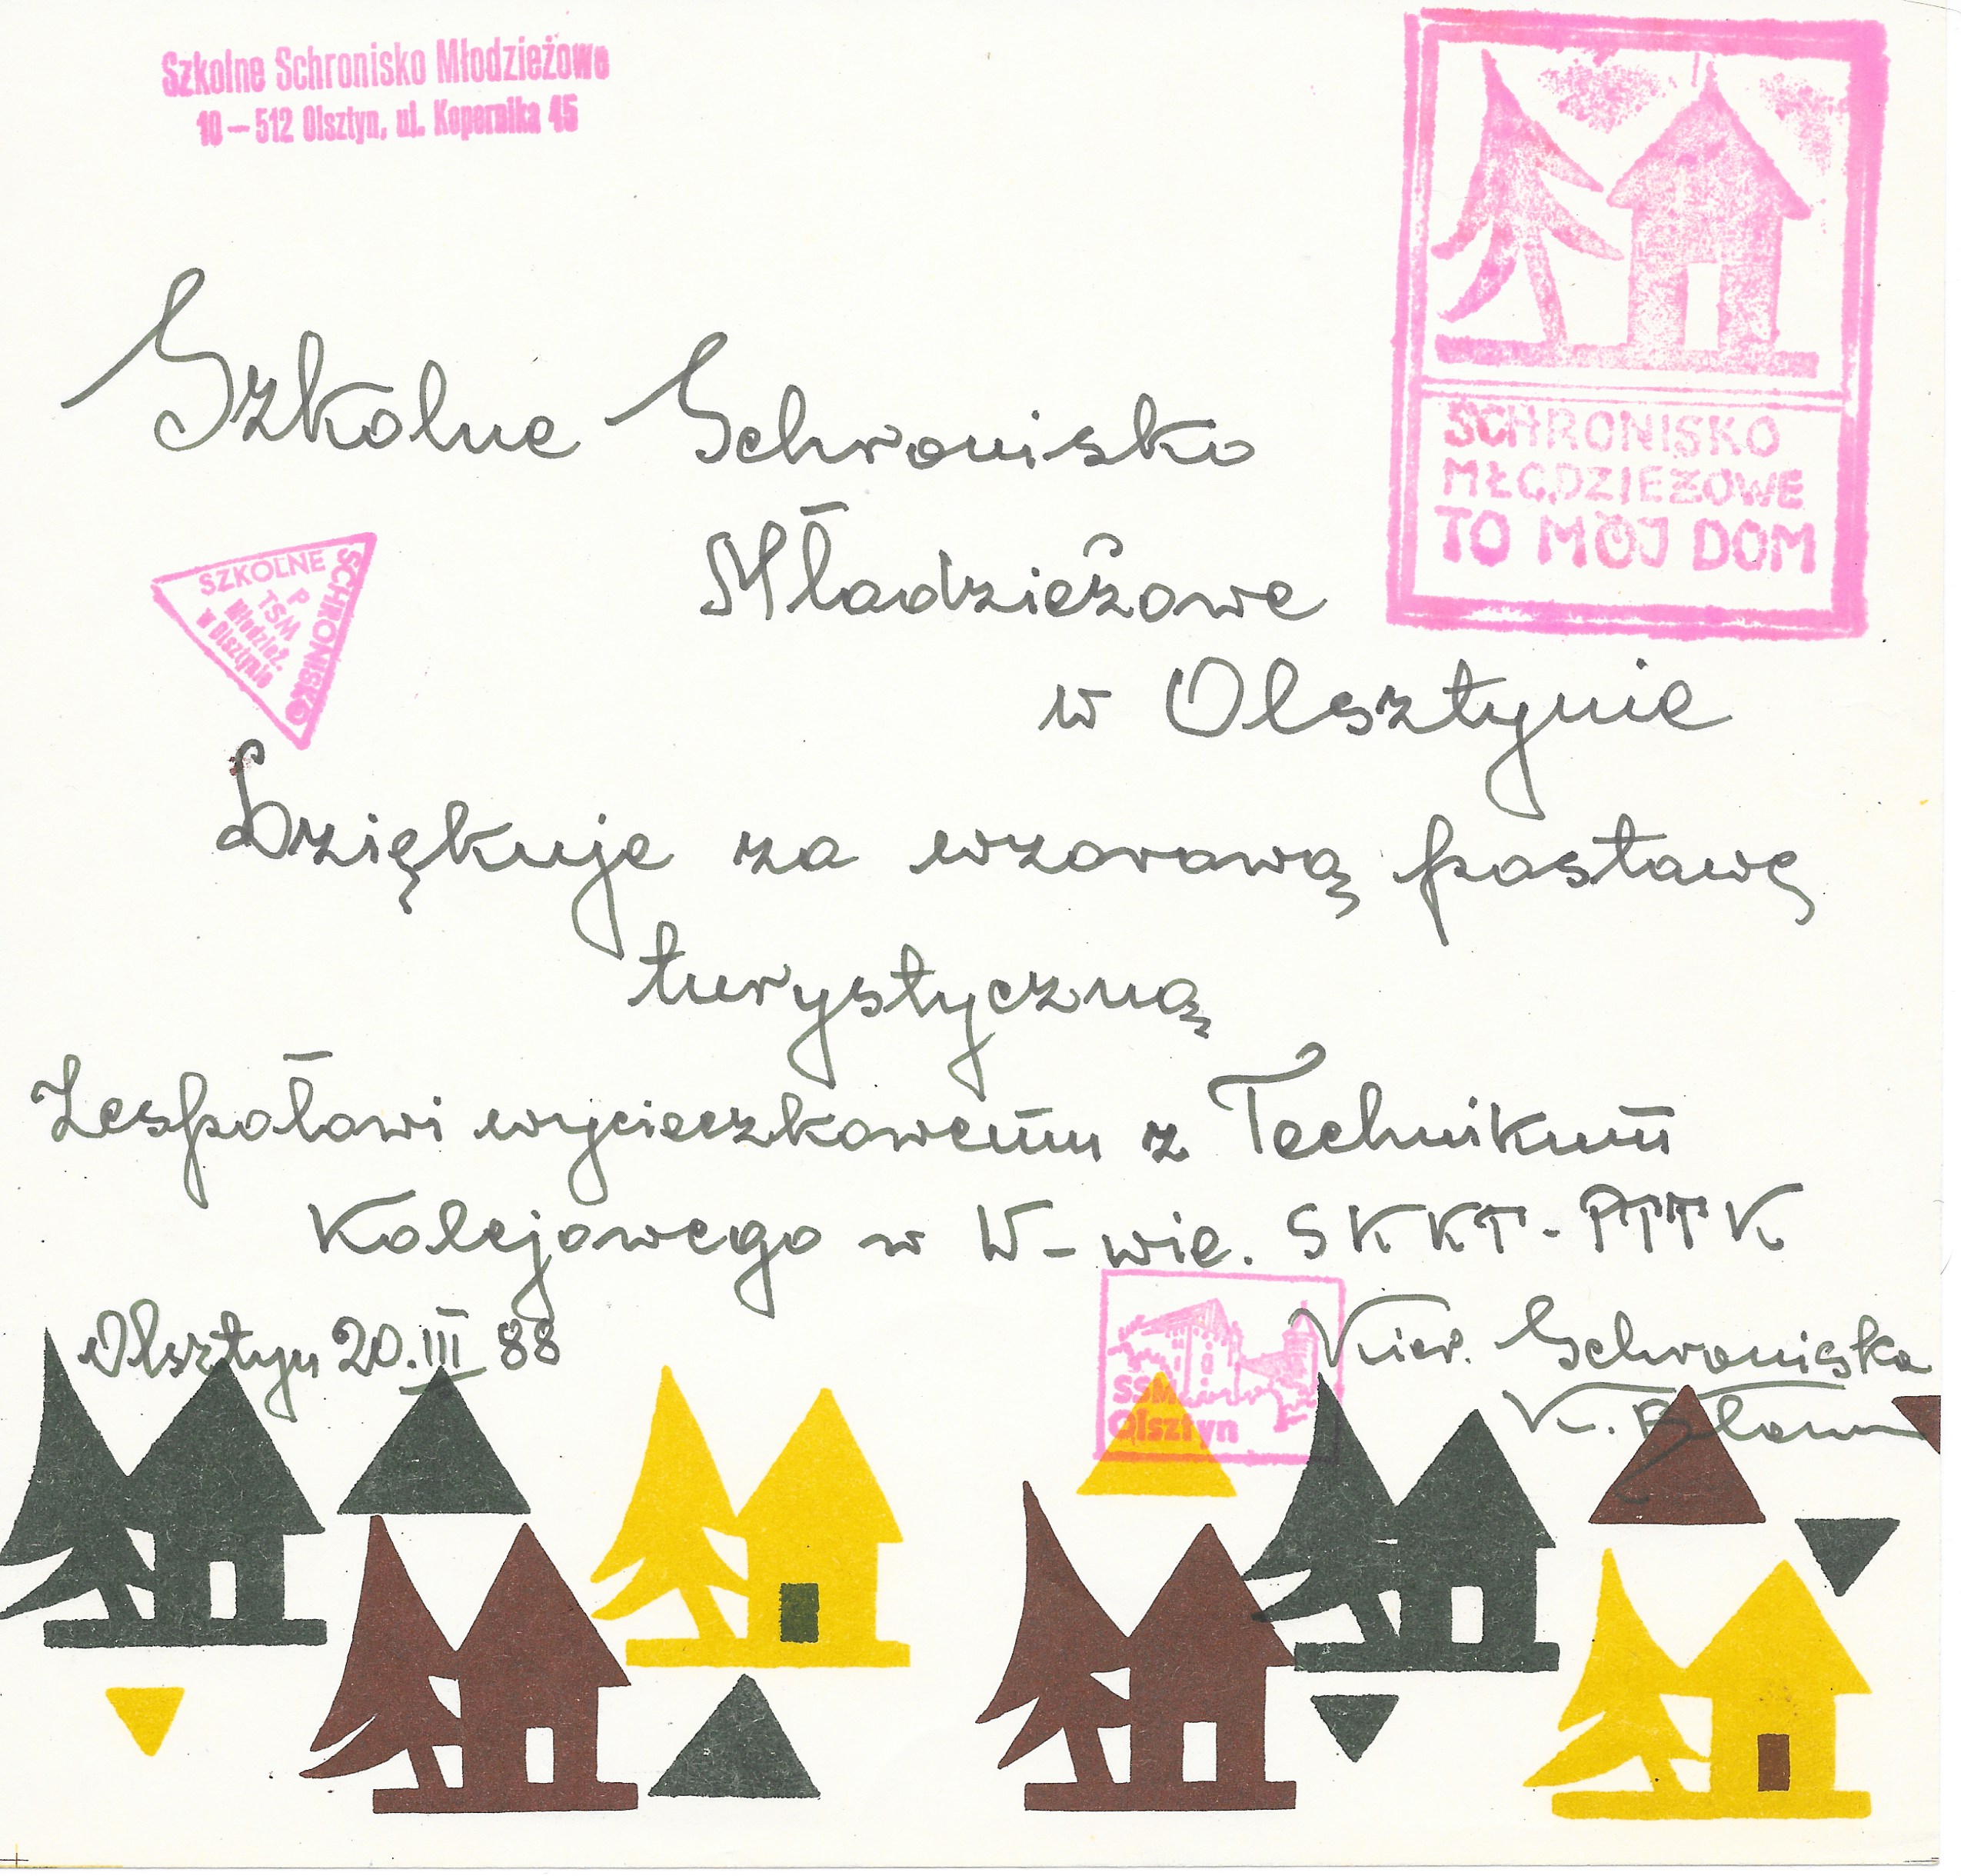 Szkolne Schronisko Młodzieżowe
10 – 512 Olsztyn, ul. Kopernika 45
SCHRONISKO
MŁODZIEŻOWE
TO MÓJ DOM
Szkolne Schronisko
Młodzieżowe
w Olsztynie
SZKOLNE
SCHRONISKO
P
TSM
Młodzież.
w Olsztynie
Dziękuje za wzorową postawę
turystyczną
Zespołowi wycieczkowemu z Technikum
Kolejowego w W-wie. SKKT-PTTK
Olsztyn 20.III 88
Kier. Schroniska
K.
SSM
Olsztyn